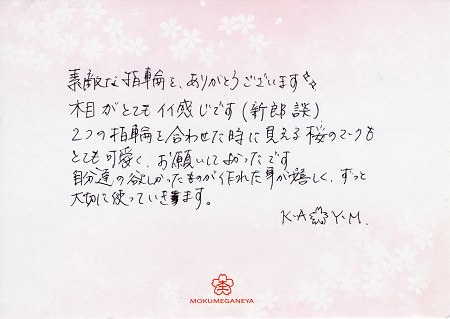 素敵な指輪を、ありがとうございます✨
木目がとてもイイ感じです(新郎談)
2つの指輪を合わせた時に見える桜のマークも
とても可愛く、お願いしてよかったです
自分達の欲しかったものが作れた事が嬉しく、ずっと
大切に使っていきます。
K・A🌸Y・M.
MOKUMEGANEYA